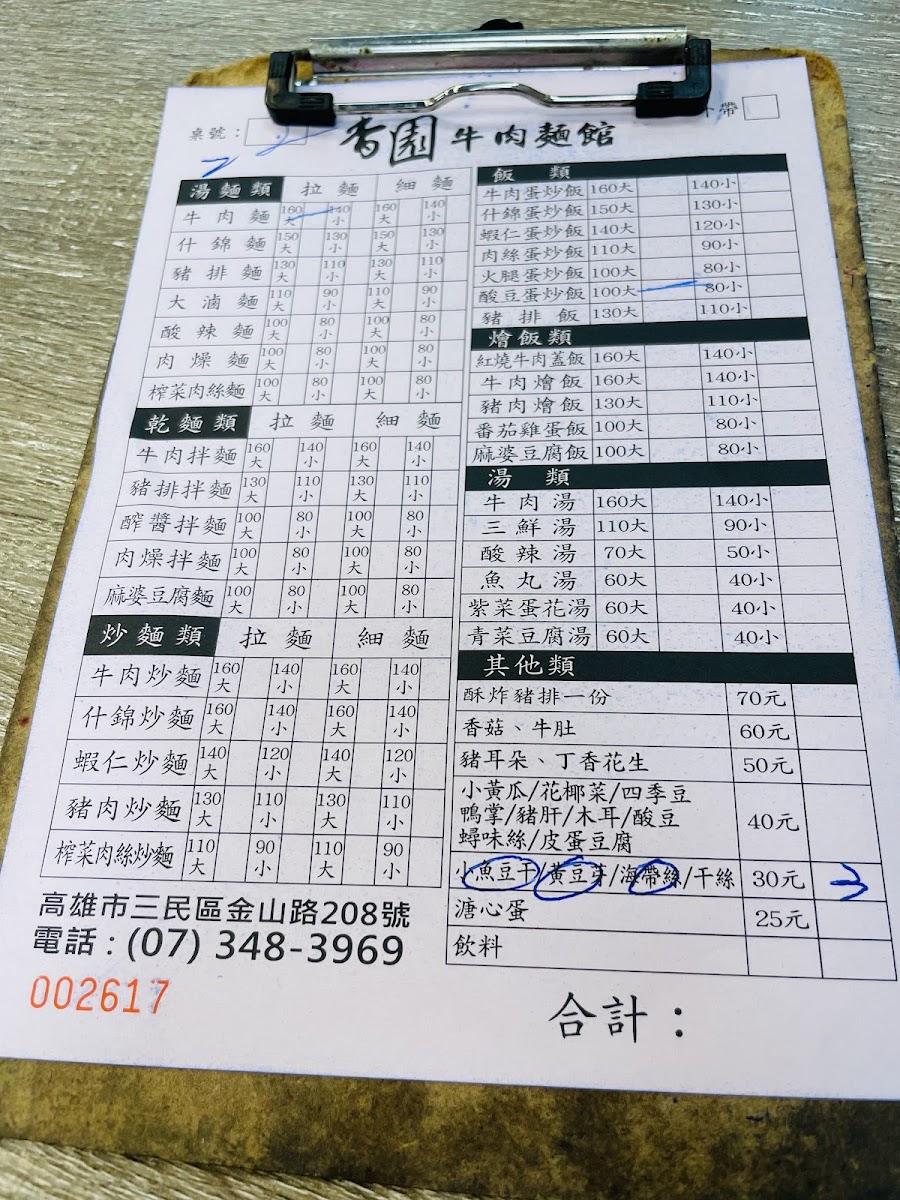 桌號：
帶
香園牛肉麵館
湯麵類 拉麵 細麵
牛肉麵 160大 140小 160大 140小
什錦麵 150大 130小 150大 130小
豬排麵 130大 110小 130大 110小
大滷麵 110大 90小 110大 90小
酸辣麵 100大 80小 100大 80小
肉燥麵 100大 80小 100大 80小
榨菜肉絲麵 100大 80小 100大 80小
乾麵類 拉麵 細麵
牛肉拌麵 160大 140小 160大 140小
豬排拌麵 130大 110小 130大 110小
醡醬拌麵 100大 80小 100大 80小
肉燥拌麵 100大 80小 100大 80小
麻婆豆腐麵 100大 80小 100大 80小
炒麵類 拉麵 細麵
牛肉炒麵 160大 140小 160大 140小
什錦炒麵 160大 140小 160大 140小
蝦仁炒麵 140大 120小 140大 120小
豬肉炒麵 130大 110小 130大 110小
榨菜肉絲炒麵 110大 90小 110大 90小
高雄市三民區金山路208號
電話：(07) 348-3969
002617
飯類
牛肉蛋炒飯 160大 140小
什錦蛋炒飯 150大 130小
蝦仁蛋炒飯 140大 120小
肉絲蛋炒飯 110大 90小
火腿蛋炒飯 100大 80小
酸豆蛋炒飯 100大 80小
豬排飯 130大 110小
燴飯類
紅燒牛肉蓋飯 160大 140小
牛肉燴飯 160大 140小
豬肉燴飯 130大 110小
番茄雞蛋飯 100大 80小
麻婆豆腐飯 100大 80小
湯類
牛肉湯 160大 140小
三鮮湯 110大 90小
酸辣湯 70大 50小
魚丸湯 60大 40小
紫菜蛋花湯 60大 40小
青菜豆腐湯 60大 40小
其他類
酥炸豬排一份 70元
香菇、牛肚 60元
豬耳朵、丁香花生 50元
小黃瓜/花椰菜/四季豆
鴨掌/豬肝/木耳/酸豆 40元
蟳味絲/皮蛋豆腐
小魚豆干/黃豆芽/海帶絲/干絲 30元 3
溏心蛋 25元
飲料
合計：